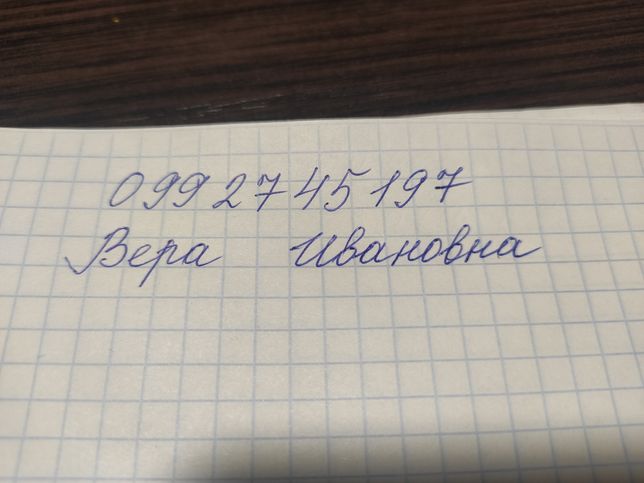 0992745197
Вера Ивановна